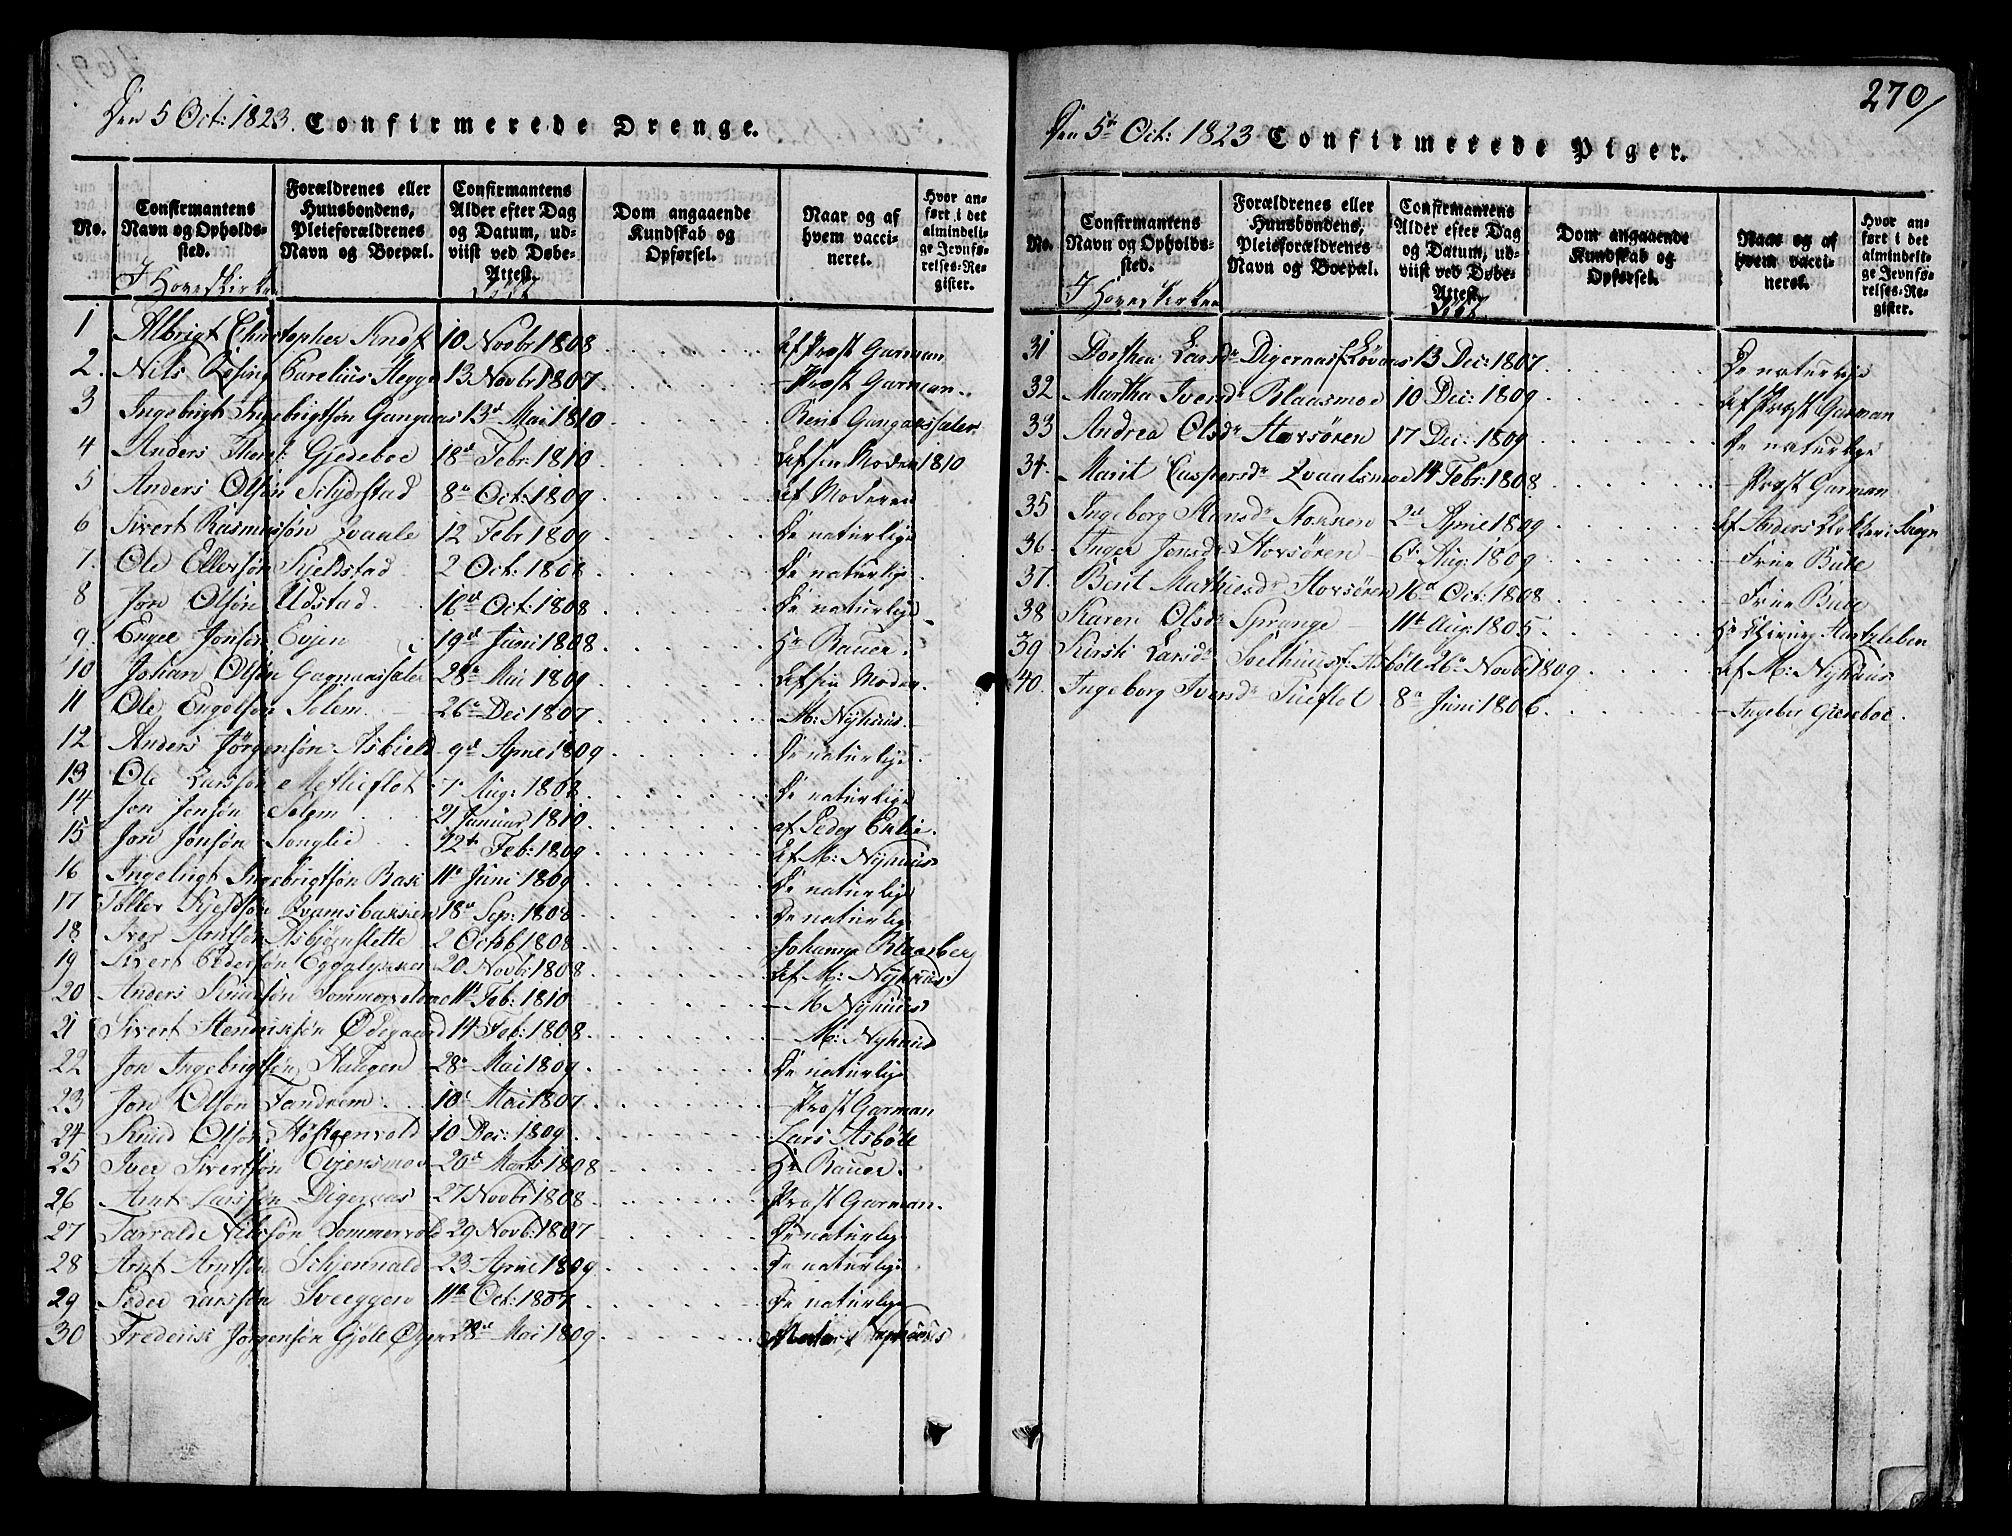 270/
Den 5 Oct: 1823. Confirmerede Drenge.
No.
Confirmantens Navn og Opholds-sted.
Forældrenes eller Huusbondens, Pleieforældrenes Navn og Boepæl.
Confirmantens Alder efter Dag og Datum, ud-viist ved Døbe-Attest.
Dom angaaende Kundskab og Opførsel.
Naar og af hvem vacci-neret.
Hvor an-ført i det almindeli-ge Jevnfø-relses-Re-gister.
I Hovedkirken
1 Albrigt Christopher Knoff 10 Novbr 1808 af Provst Garman
2. Nils Rosing Carelius Hegge 13 Novbr 1807. - Provst Garman.
3 Ingebrigt Ingebrigtsøn Gangaas 13d Mai 1810 Berit Gangaassæter
4 Anders Gjedeboe 18d Febr: 1810 af sin Moder 1810
5 Anders Olsøn 8d Oct: 1809 af Moderen
6 Sivert Rasmussøn Qvaale 12 Febr 1809 De naturlige
7. Ole Ellefsøn Kjelstad 2 Oct: 1808 De naturlige.
8 Jon Olsøn Udstad. 16d Oct: 1808 De naturlige
9. Engel Jonsøn Evjen 19d Juni 1808. Hr Bauer.
10 Johan Olsøn 28d Mai 1809 af sin Moder.
11 Ole Engelsøn Solem. 26d Dec 1807. - M: Nyhuus.
12 Anders Jørgensøn Asbield 9d April 1809 De naturlige.
13 Ole Larssøn 7d Aug: 1808. De naturlige
14 Jon Jonsøn Solem 21 Januar 1810 af Peder
15 Jon Jonsøn Songlie 22d Feb: 1809 af M: Nyhuus
16 Ingebrigt Ingebrigtsøn Bak 11d Juni 1809 De naturlige
17 Toller Kjeldsøn Qvamsbakken 18d Sep: 1808 De naturlige
18. Iver Arntsøn Asbjørnslette 2 Octob 1808. Johanna Blaasberg
19 Sivert Pedersøn Eggalykken 20 Novb: 1808. af M: Nyhuus
20 Anders Knudsøn 11d Feb: 1810 - M Nyhuus
21 Sivert Henrikssøn Ødegaard 14 Feb: 1808. - M: Nyhuus
22 Jon Ingebrigtsøn Haugen 28d Mai 1809 De naturlige
23 Jon Olsøn Fandrem. 10d Mai 1807. - Provst Garman
24 Knud Olsøn 10 Dec: 1809. Lars Asbøll
25 Iver Sivertsøn Evjensmoe 20d Marts 1808 Hr Bauer.
26 Arnt Larssøn Digeraas 27 Novbr 1808. Provst Garman.
27 Tarrald Nilssøn Sommervold 29 Novb: 1807 De naturlige
28 Arnt Arntsøn Schjenvald 23 April 1809 De naturlige
29 Peder Larssøn Sveeggen 11te Oct: 1807. De naturlige
30 Frederik Jørgensøn Gjølle Øyen 28d Mai 1809 Nyhuus
Den 5te Oct: 1823 Confirmerede Piger.
No.
Confirmantens Navn og Opholds-sted.
Forældrenes eller Huusbondens, Pleieforældrenes Navn og Boepæl.
Confirmantens Alder efter Dag og Datum, ud-viist ved Døbe-Attest.
Dom angaaende Kundskab og Opførsel.
Naar og af hvem vacci-neret.
Hvor an-ført i det almindeli-ge Jevnfø-relses-Re-gister.
I Hovedkirken
31 Dorthea Larsdr 13 Dec: 1807. De naturlige
32 Martha Iversdr Blaasmoe 10 Dec: 1809 af Provst Garman
33 Andrea Olsdr Storsøren 17 Dec: 1809 De naturlige
34. Marit Caspersdr Qvaalsmoe 14 Febr: 1808 - Provst Garman
35 Ingeborg Stensdr Stokken 2d April 1809 af Anders Klokker
36. Inger Jensdr Storsøren 6te Aug: 1809 - Frue Bull
37. Berit Mathiesdr Storsøren 16d Oct: 1808 - Frue Bull
38 Karen Olsdr Sprauge 11te Aug: 1805. Hr Hartzleben
39 Kirsti Larsdr Asbøll 26d Novbr 1809 af M: Nyhuus
40. Ingeborg Iversdr Tueflot 8d Juni 1806. - Ingeber Gjereboe.